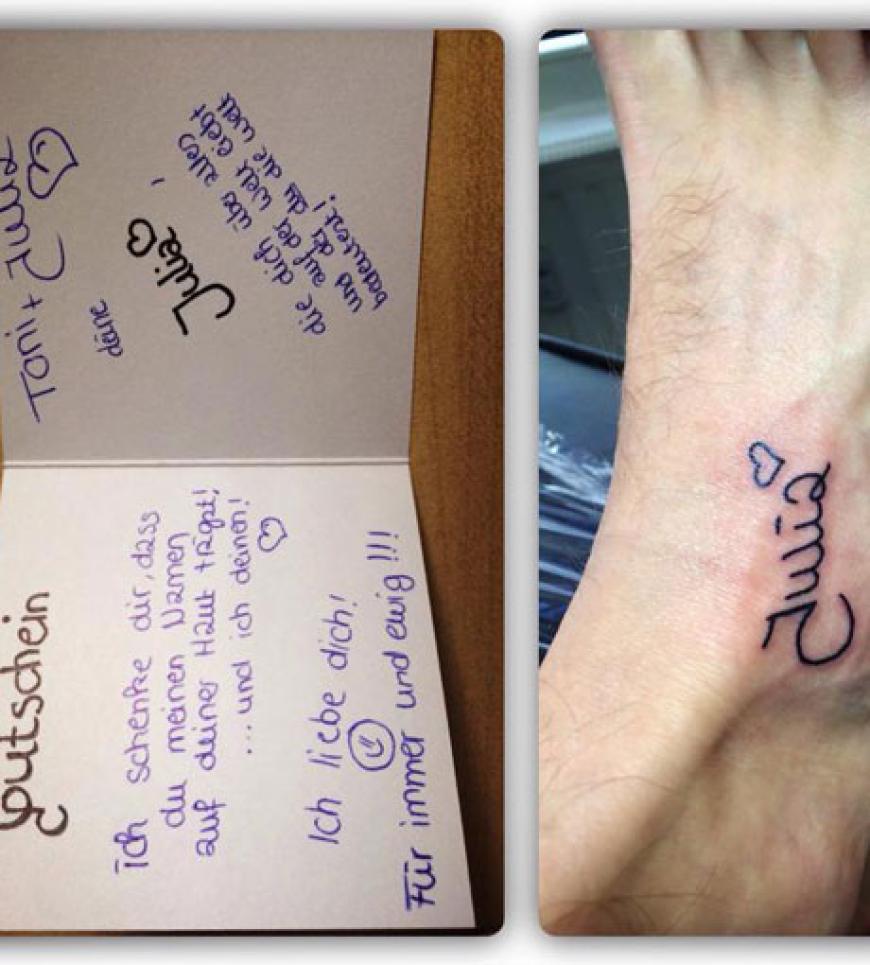 Gutschein
Ich schenke dir, dass
du meinen Namen
auf deiner Haut trägst!
... und ich deinen!
♡
Ich liebe dich!
Für immer und ewig!!!
Toni + Julia ♡
deine
Julia ♡,
die dich über alles
auf der Welt liebt
und der du die Welt
bedeutest!
Julia ♡